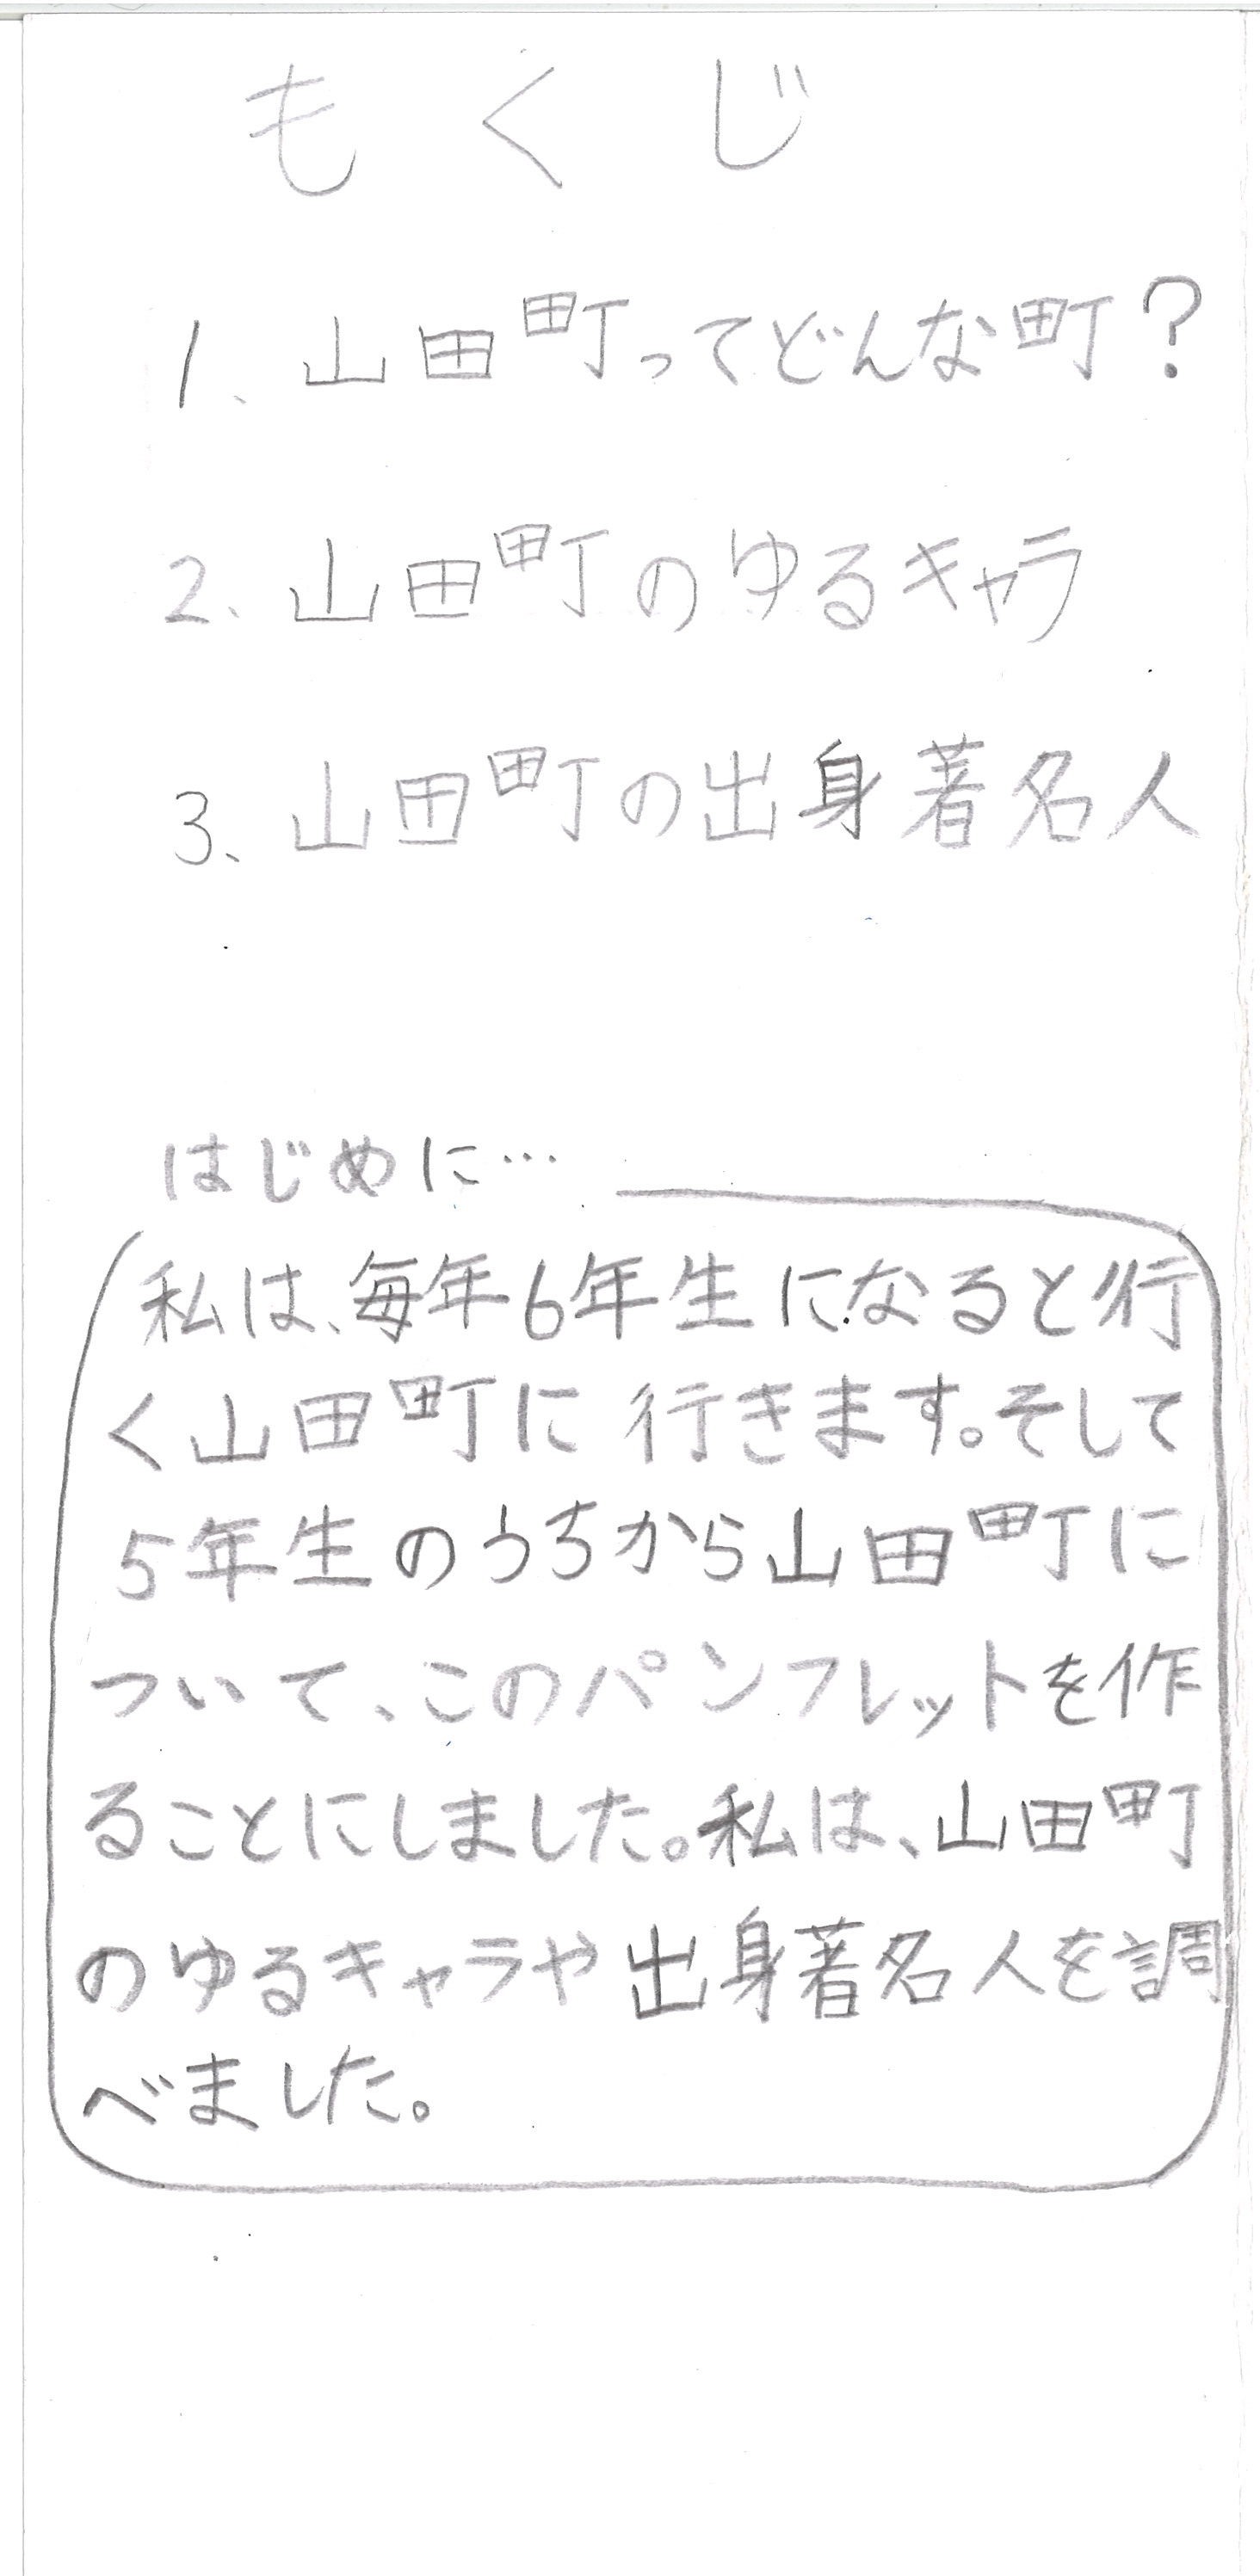 もくじ
1、山田町ってどんな町?
2、山田町のゆるキャラ
3、山田町の出身著名人
はじめに…
私は、毎年6年生になると行
く山田町に行きます。そして
5年生のうちから山田町に
ついて、このパンフレットを作
ることにしました。私は、山田町
のゆるキャラや出身著名人を調
べました。